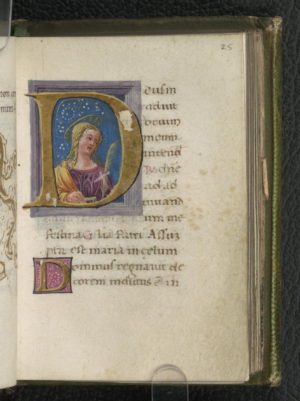 25
Deus in
adiut
orium
meum
intend
Dne
ad ad
iuvand
um me
festina Glia Patri Assũ
pta est maria in celum
Dominus regnavit de
corem indutus ẽ in